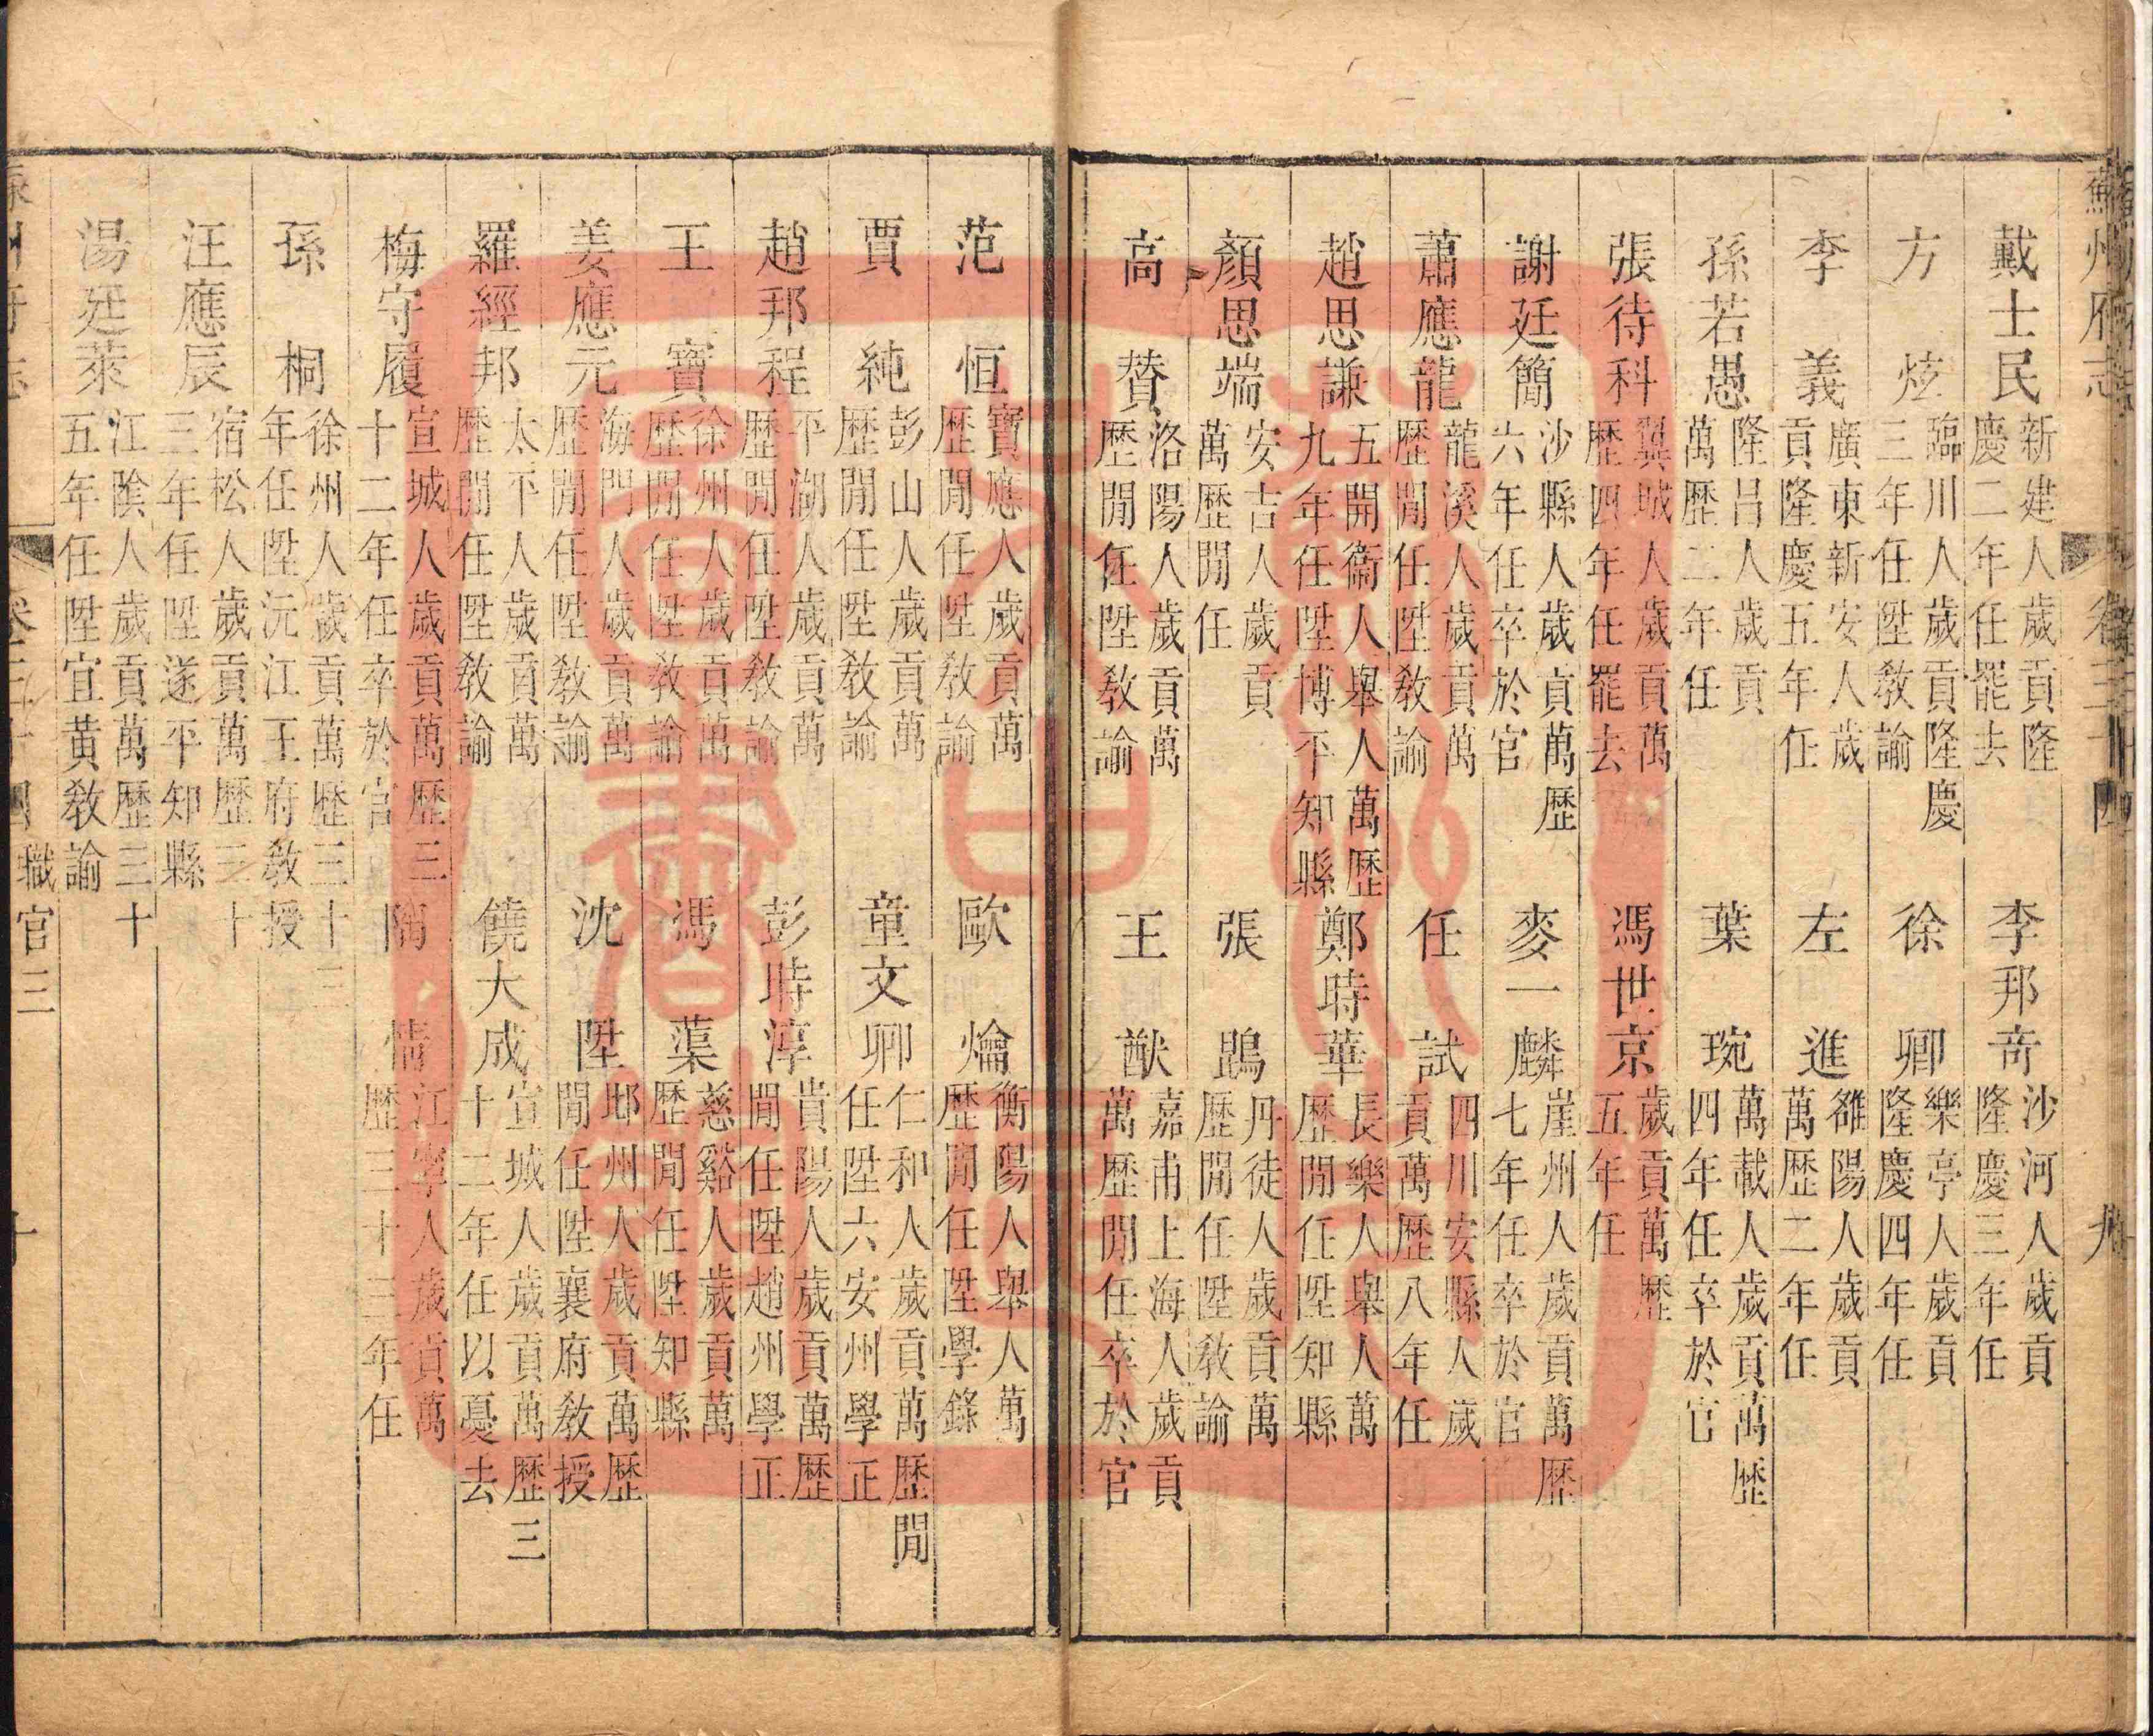 蘇州府志 卷三十四 九
戴士民 新建人歲貢隆慶二年任罷去 李邦奇 沙河人歲貢隆慶三年任
方炫 臨川人歲貢隆慶三年任陞敎諭 徐卿 樂亭人歲貢隆慶四年任
李義 廣東新安人歲貢隆慶五年任 左進 雒陽人歲貢萬歷二年任
孫若愚 隆昌人歲貢萬歷二年任 葉琬 萬載人歲貢萬歷四年任卒於官
張待科 翼城人歲貢萬歷四年任罷去 馮世京 歲貢萬歷五年任
謝廷簡 沙縣人歲貢萬歷六年任卒於官 麥一麟 崖州人歲貢萬歷七年任卒於官
蕭應龍 龍溪人歲貢萬歷閒任陞敎諭 任試 四川安縣人歲貢萬歷八年任
趙思謙 五開衞人舉人萬歷九年任陞博平知縣 鄭時華 長樂人舉人萬歷閒任陞知縣
顏思端 安吉人歲貢萬歷閒任 張鵾 丹徒人歲貢萬歷閒任陞敎諭
高賛 洛陽人歲貢萬歷閒任陞敎諭 王猷 嘉甫上海人歲貢萬歷閒任卒於官
范恒 寶應人歲貢萬歷閒任陞敎諭 歐爚 衡陽人舉人萬歷閒任陞學錄
賈純 彭山人歲貢萬歷閒任陞敎諭 童文卿 仁和人歲貢萬歷閒任陞六安州學正
趙邦程 平湖人歲貢萬歷閒任陞敎諭 彭時淳 貴陽人歲貢萬歷閒任陞趙州學正
王寶 徐州人歲貢萬歷閒任陞敎諭 馮蕖 慈谿人歲貢萬歷閒任陞知縣
姜應元 海門人歲貢萬歷閒任陞敎諭 沈陞 邳州人歲貢萬歷閒任陞襄府敎授
羅經邦 太平人歲貢萬歷閒任陞敎諭 饒大成 宣城人歲貢萬歷三十二年任以憂去
梅守履 宣城人歲貢萬歷三十二年任卒於官 隋情 江寧人歲貢萬歷三十三年任
孫桐 徐州人歲貢萬歷三十三年任陞沅江王府敎授
汪應辰 宿松人歲貢萬歷三十三年任陞遂平知縣
湯廷萊 江陰人歲貢萬歷三十五年任陞宜黃敎諭
職官三 十